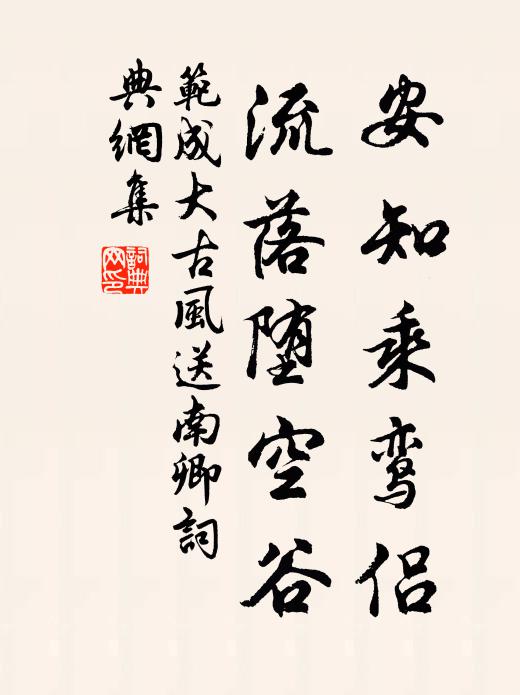 安知乘鸾侣
流落堕空谷
範成大古風送南卿詞
典網集
詞典网印